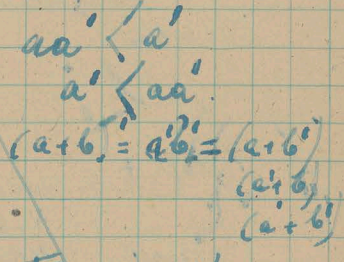 aa' < a'
a' < aa'.
(a+b)' = a'b' = (a+b')
(a'+b)
(a'+b')